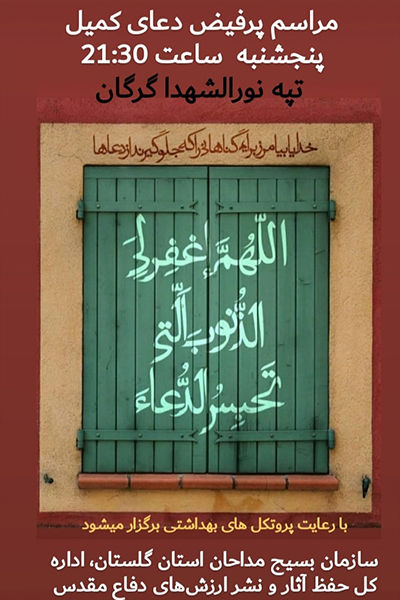 مراسم پرفیض دعای کمیل
پنجشنبه ساعت 21:30
تپه نورالشهدا گرگان
خدایا بیامرز برایم گناهانی را که جلوگیرند از دعاها
اللّهُمَّ إغفِرلِیَ
الذُّنُوبَ الَّتی
تَحبِسُ الدُّعاءَ
با رعایت پروتکل های بهداشتی برگزار میشود
سازمان بسیج مداحان استان گلستان، اداره
کل حفظ آثار و نشر ارزش‌های دفاع مقدس